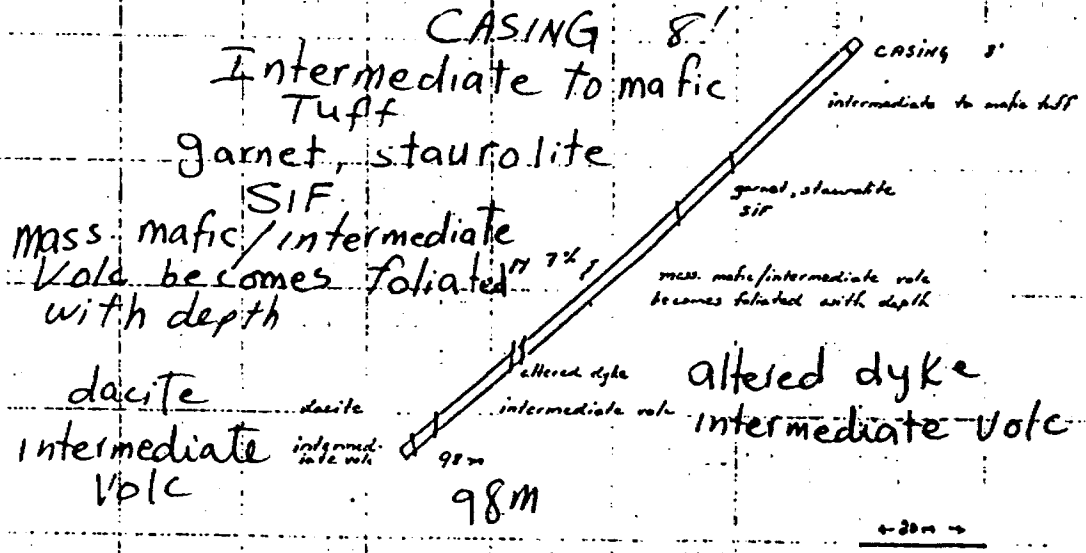 CASING 8'
Intermediate to mafic
Tuff
garnet, staurolite
SIF
mass. mafic/intermediate
Volc becomes foliated
with depth
dacite
intermediate
Volc
CASING 8'
intermediate to mafic tuff
garnet, staurolite
SIF
7%
mass. mafic/intermediate volc
becomes foliated with depth
altered dyke
intermediate volc
altered dyke
intermediate volc
dacite
intermed-
iate volc
98m
98m
←20m→